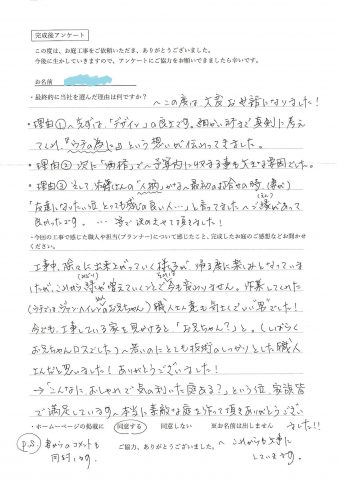 完成後アンケート
この度は、お庭工事をご依頼いただき、ありがとうございました。
今後に生かしていきますので、アンケートにご協力をお願いできましたら幸いです。
お名前
・最終的に当社を選んだ理由は何ですか?
へこの度は、大変お世話になりました!
・理由① へ先ずは、「デザイン」の良さです。細かい所まで真剣に考え
てくれ、「ウチの為に。」という想いが伝わってきました。
・理由② 次に「価格」で〜予算内に収まる事も大きな要因でした。
・理由③ そして、
「人柄」
最初の
友達になりたい位とっても感じの良い人…」と言ってました〜ご縁があって
良かったです。… 決めさせて頂きました!
・今回の工事で感じた職人や担当(プランナー)について感じたこと、完成したお庭のご感想などお聞かせ
ください。
工事中、除々に出来上がっていく様子が、帰る度に楽しみとなっていま
したが、これから緑が増えていくことで
今も変わりません。作業してくれた
お兄ちゃん) 職人さん達も
でした!
今でも、工事している家を見かけると「お兄ちゃん?」と。(しばらく
お兄ちゃんロスでした) へ若いのにとても技術のしっかりとした職人
さんだと思いました! ありがとうございました!
→「こんなにおしゃれで気の利いた庭ある?」という位、家族皆
で満足しています〜本当に素敵な庭を作って頂きありがとうござい
ました!!
・ホームページの掲載に 同意する 同意しない ※お名前は出しません
P.S.
妻からのコメントも
同封
ご協力、ありがとうございました。
へこれからも大事に
しています。